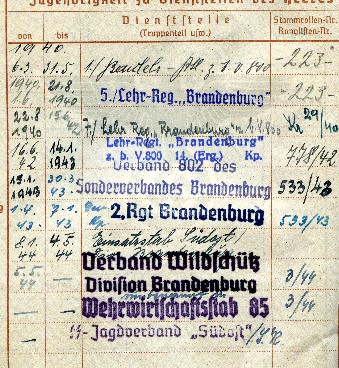 Zugehörigkeit zu Dienststellen des Heeres
Dienststelle
(Truppenteil usw.)
Stammrollen-Nr.
Ranglisten-Nr.
von bis
1940.
6.3. 31.5. z.V. 800 -223-
1940 21.8. 1940 5./Lehr-Reg. „Brandenburg" -223-
22.8 1940 7/ Lehr Reg. Brandenburg z.V. 800 29/40
16.6. 42 14.1. 1943 Lehr-Regt. „Brandenburg"
z. b. V. 800 14. (Erg.) Kp. 778/42
Verband 802 des
30.3. 43. Sonderverbandes Brandenburg 533/43
1.4. 43. 7.1. 43. 2. Rgt Brandenburg 533/43
8.1. 44 4.5. 44 Einsatzstab Südost/
Verband Wildschütz
5.5. 44 Division Brandenburg 3/44
Wehrwirtschaftsstab 85 3/44
-Jagdverband „Südost"